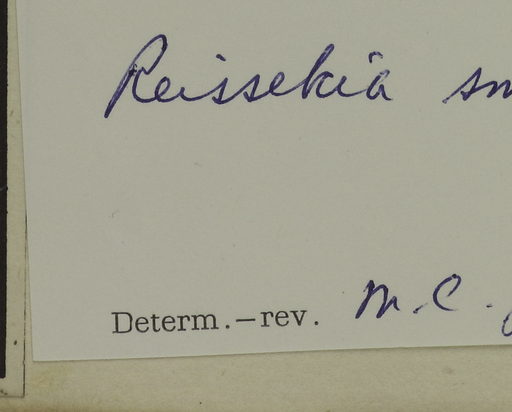 Reissekia sm
Determ.—rev. M.C.